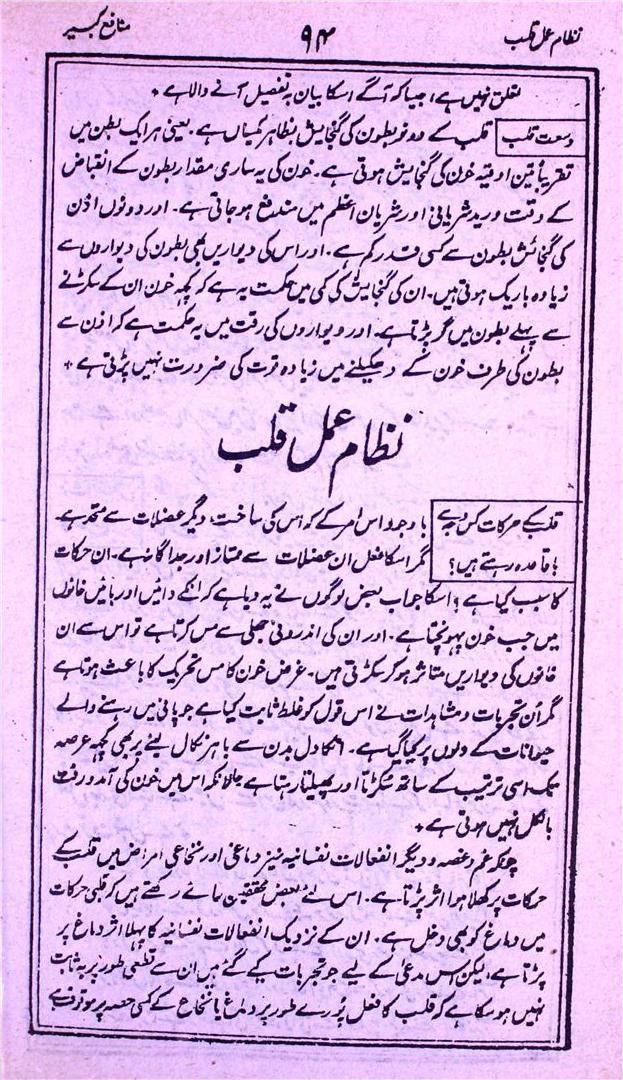 نظام عمل قلب ۹۴ منافع کبیر
تعلق نہیں ہے، جیسا کہ آگے اسکا بیان بہ تفصیل آنے والا ہے *
وسعت قلب
قلب کے دونو بطون کی گنجایش بظاہر یکساں ہے۔ یعنی ہر ایک بطن میں
تقریباً تین اوقیہ خون کی گنجایش ہوتی ہے۔ خون کی یہ ساری مقدار بطون کے انقباض
کے وقت ورید شریانی اور شریان اعظم میں مندفع ہو جاتی ہے۔ اور دونوں اذن
کی گنجائش بطون سے کسی قدر کم ہے۔ اور اس کی دیواریں بھی بطون کی دیواروں سے
زیادہ باریک ہوتی ہیں۔ ان کی گنجایش کی کمی میں حکمت یہ ہے کہ کچھ خون ان کے سکڑنے
سے پہلے بطون میں گر پڑتا ہے۔ اور دیواروں کی رقت میں یہ حکمت ہے کہ اذن سے
بطون کی طرف خون کے دھکیلنے میں زیادہ قوت کی ضرورت نہیں پڑتی ہے *
نظام عمل قلب
قلب کے حرکات کس وجہ سے
باقاعدہ رہتے ہیں؟
باوجود اس امر کے کہ اس کی ساخت دیگر عضلات سے متحد ہے۔
مگر اسکا فعل ان عضلات سے ممتاز اور جداگانہ ہے۔ ان حرکات
کا سبب کیا ہے؟ اسکا جواب بعض لوگوں نے یہ دیا ہے کہ انکے دائیں اور بائیں خانوں
میں جب خون پہونچتا ہے۔ اور ان کی اندرونی جھلی سے مس کرتا ہے تو اس سے ان
خانوں کی دیواریں متاثر ہو کر سکڑتی ہیں۔ غرض خون کا مس تحریک کا باعث ہوتا ہے
مگر اُن تجربات و مشاہدات نے اس قول کو غلط ثابت کیا ہے جو پانی میں رہنے والے
حیوانات کے دلوں پر کیا گیا ہے۔ انکا دل بدن سے باہر نکال لینے پر بھی کچھ عرصہ
تک اسی ترتیب کے ساتھ سُکڑتا اور پھیلتا رہتا ہے حالانکہ اس میں خون کی آمد و رفت
بالکل نہیں ہوتی ہے *
چونکہ غم و غصہ و دیگر انفعالات نفسانیہ نیز دماغی اور نخاعی امراض میں قلب کے
حرکات پر کھلا ہوا اثر پڑتا ہے۔ اس لئے بعض محققین رائے رکھتے ہیں کہ قلبی حرکات
میں دماغ کو بھی دخل ہے۔ ان کے نزدیک انفعالات نفسانیہ کا پہلا اثر دماغ پر
پڑتا ہے، لیکن اس مدعیٰ کے لیے جو تجربات کیے گئے ہیں ان سے قطعی طور پر یہ ثابت
نہیں ہو سکا ہے کہ قلب کا فعل پُورے طور پر دماغ یا نخاع کے کسی حصہ پر موقوف ہے